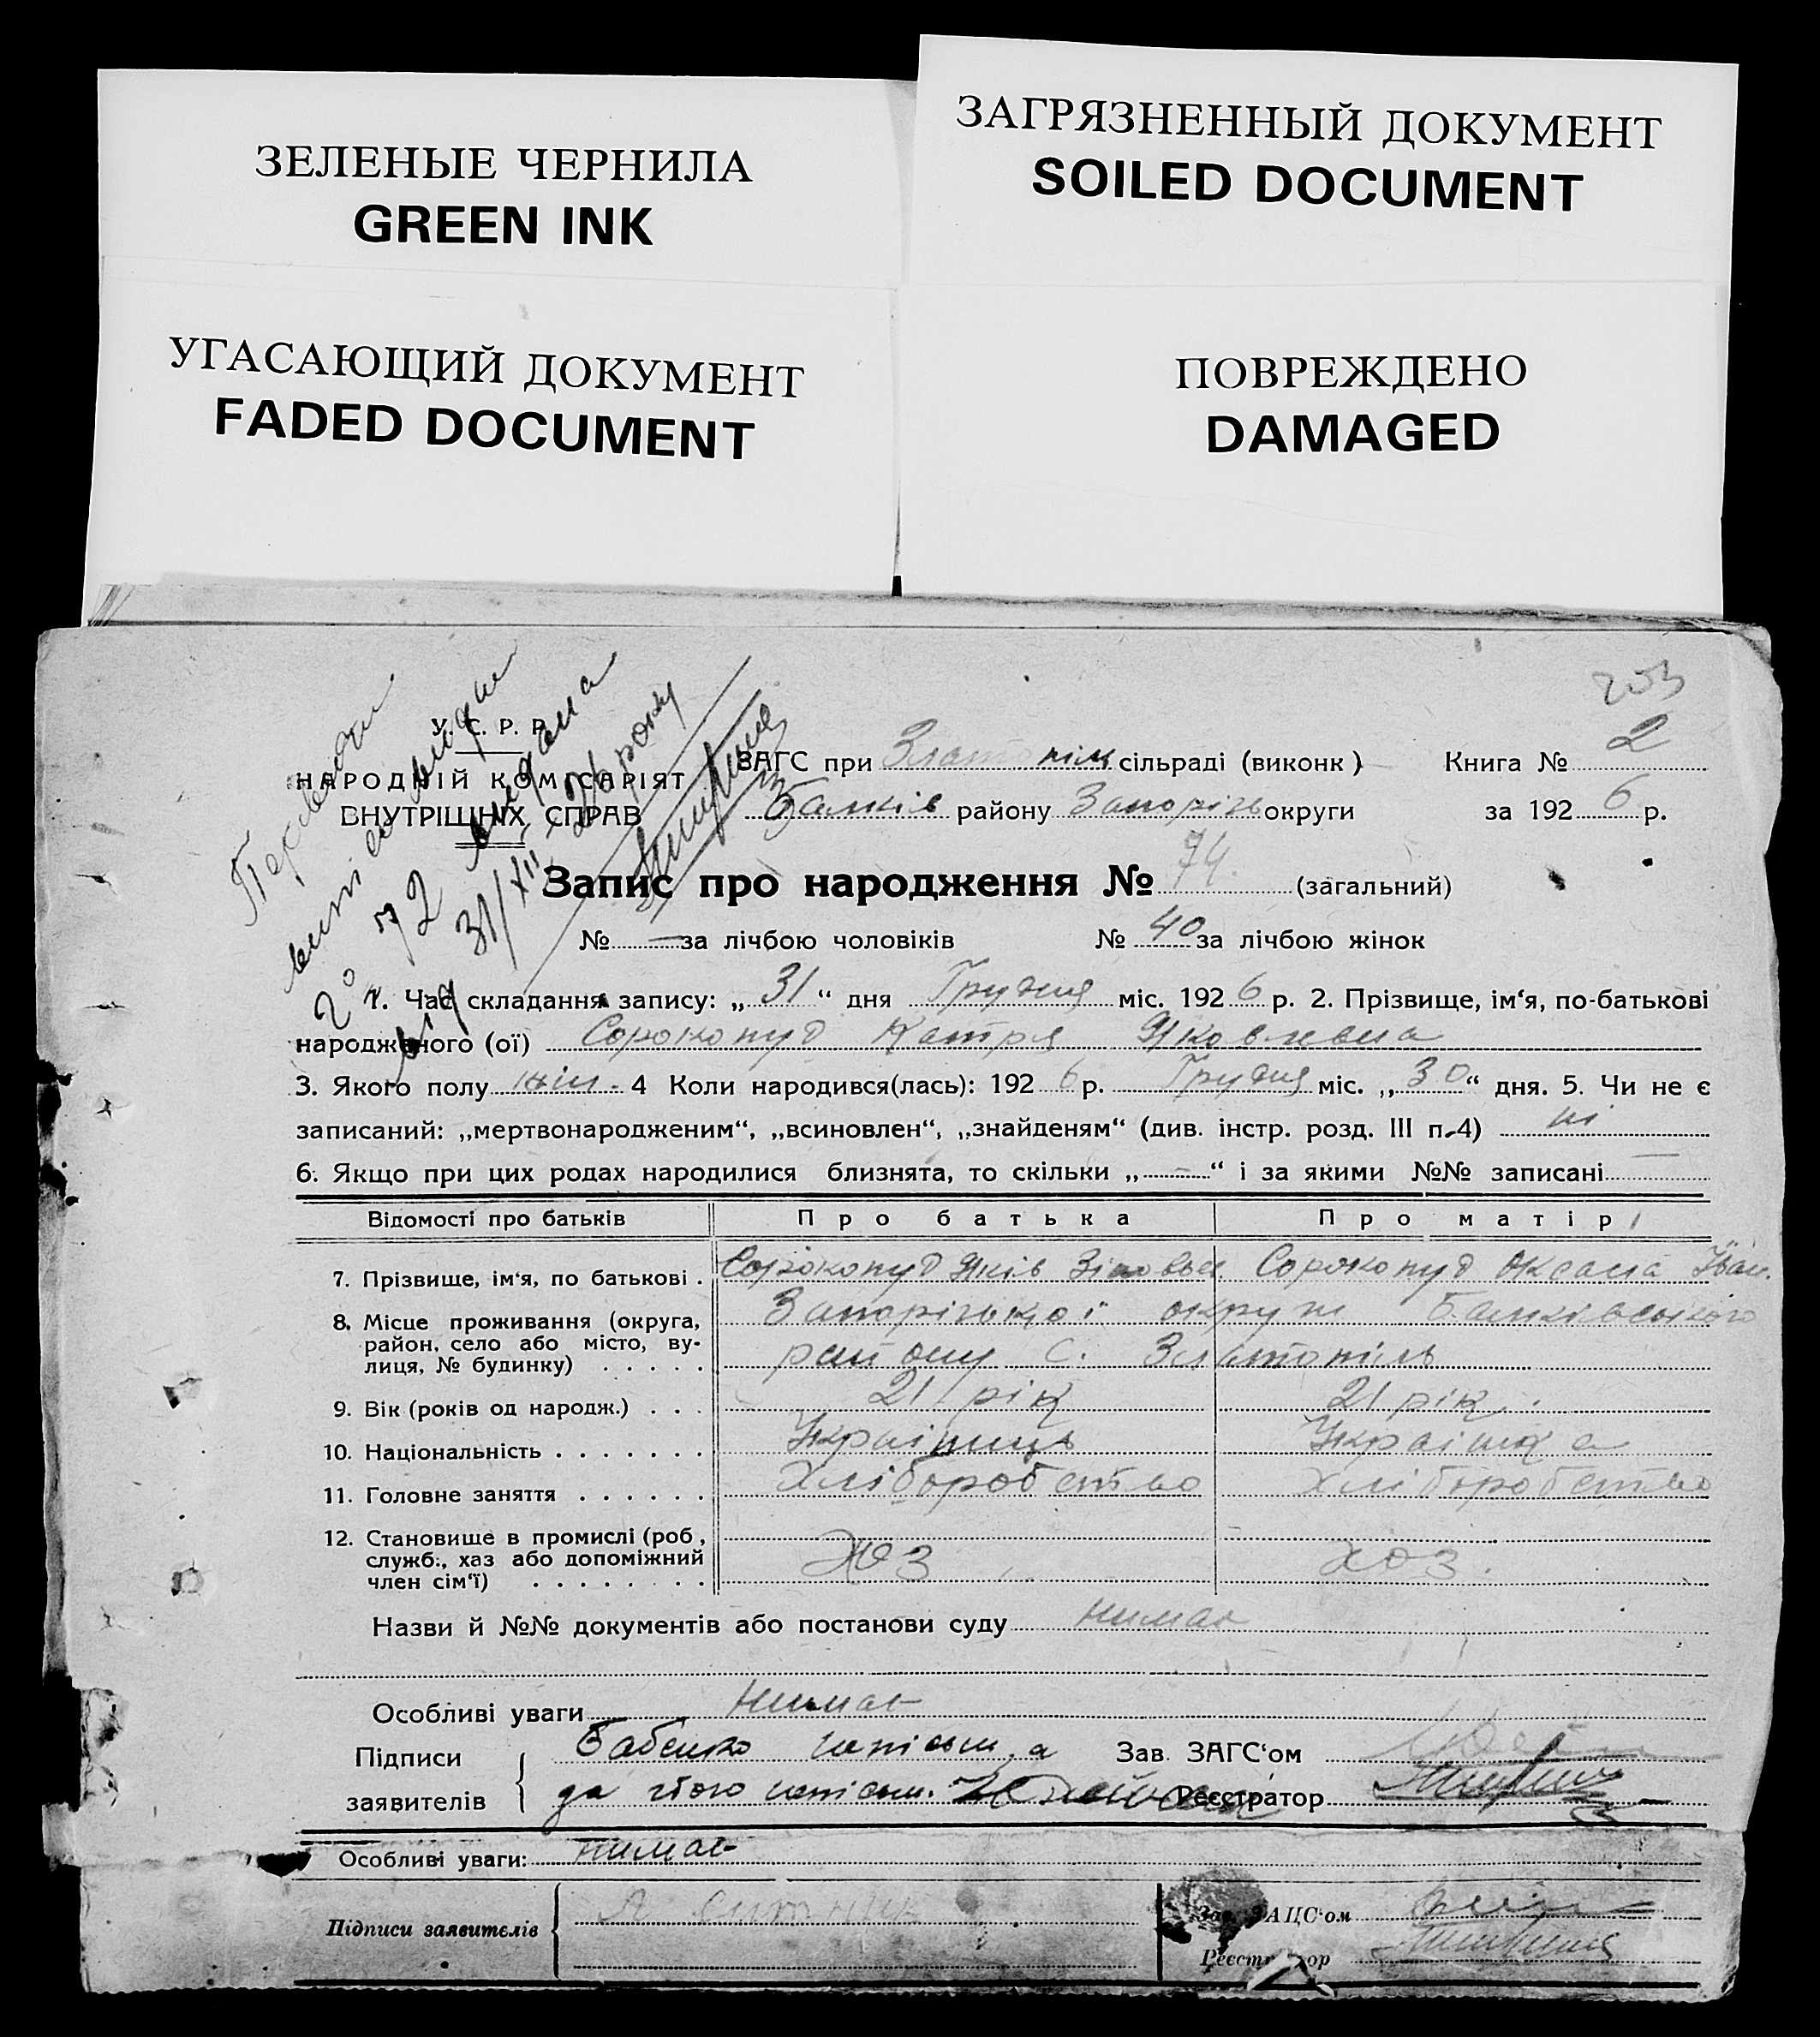 ЗЕЛЕНЫЕ ЧЕРНИЛА
GREEN INK
ЗАГРЯЗНЕННЫЙ ДОКУМЕНТ
SOILED DOCUMENT
УГАСАЮЩИЙ ДОКУМЕНТ
FADED DOCUMENT
ПОВРЕЖДЕНО
DAMAGED
203
У. С. Р. Р.
НАРОДНІЙ КОМІСАРІЯТ
ВНУТРІШНІХ СПРАВ
видана
72
31/XII 26 року
ЗАГС при Златопіл сільраді (виконк) Книга № 2
Балків району Запорізь округи за 192 6 р.
Запис про народження № 74. (загальний)
№ — за лічбою чоловіків № 40 за лічбою жінок
1. Час складання запису: „ 31 “ дня Грудня міс. 192 6 р. 2. Прізвище, ім‘я, по-батькові
народженого (ої) Сорокопуд Катря Яковлевна
3. Якого полу жін. 4 Коли народився(лась): 192 6 р. Грудня міс. „ 30 “ дня. 5. Чи не є
записаний: „мертвонародженим“, „всиновлен“, „знайденям“ (див. інстр. розд. III п.4) ні
6. Якщо при цих родах народилися близнята, то скільки „ — “ і за якими №№ записані —
Відомості про батьків Про батька Про матірі
7. Прізвище, ім‘я, по батькові . Сорокопуд Яків Зіновьи. Сорокопуд Оксана Іван.
8. Місце проживання (округа, район, село або місто, вулиця, № будинку) . . . . . Запорізької округи Балківського
району с. Златопіль
9. Вік (років од народж.) . . . 21 рік 21 рік.
10. Національність . . . . . . . Українець Українка
11. Головне заняття . . . . . . Хліборобство Хліборобство
12. Становище в промислі (роб, служб., хаз або допоміжний член сім‘ї) . . . . . . . . Хоз хоз.
Назви й №№ документів або постанови суду нимає
Особливі уваги нимає
Підписи заявителів
Бабенко а Зав. ЗАГС‘ом
Реєстратор
Особливі уваги: нимає
Підписи заявителів Зав. ЗАЦС‘ом
Реєстратор